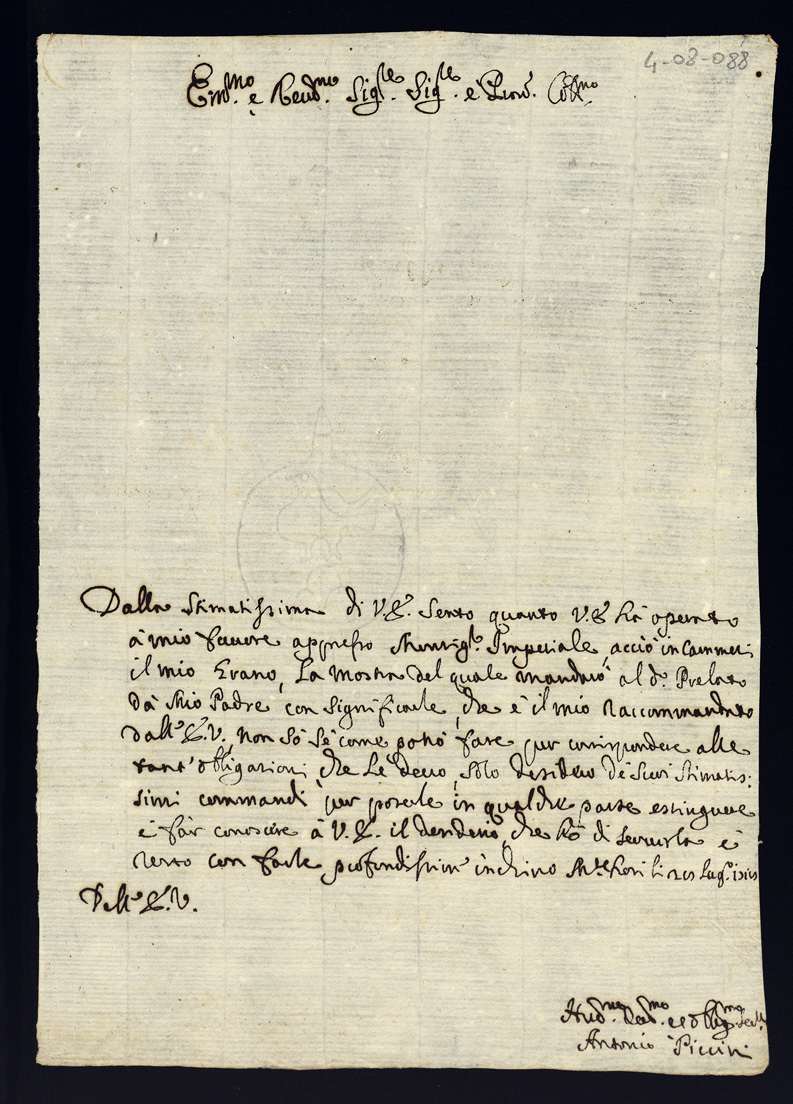 4-08-088
Em.mo e Reud.mo Sig.re Sig.re e Pron. Col.mo
Dalla Stimatissima di V.E. Sento quanto V.E. hà operato
à mio fauore appresso Monsig.r Imperiale, acciò incammeri
il mio Grano, La mostra del quale mandarò al d.o Prelato
dà Mio Padre, con significarle, che è il mio Raccommandato
dall'E.V. non sò sè come potrò fare per corrispondere alle
tant'obligazioni, che Le deuo, Solo desidero de Suoi Stimatis:
simi commandi, per poterle in qualche parte estinguere
e fàr conoscere à V.E. il desiderio, che hò di Seruirla e
resto con farle profondissim' inchino M.te fiori li Lug.o
Dell'E.V.
Hu.mo e oblig.mo
Antonio Piccini